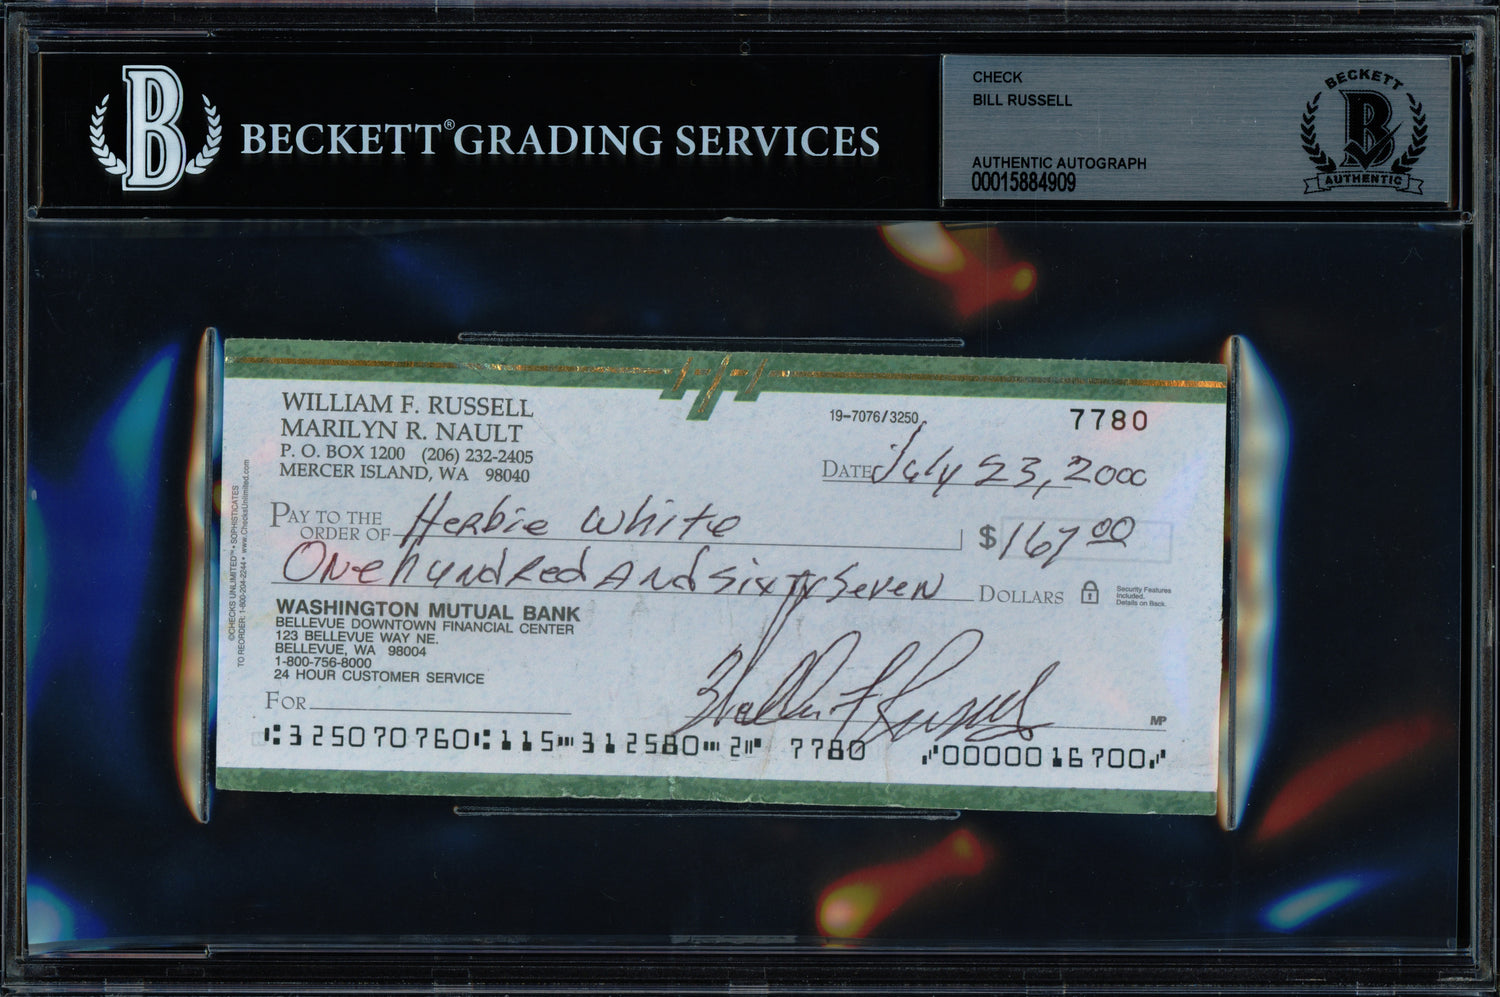 B BECKETT® GRADING SERVICES
CHECK
BILL RUSSELL
AUTHENTIC AUTOGRAPH
00015884909
BECKETT
B
AUTHENTIC
WILLIAM F. RUSSELL
MARILYN R. NAULT
P. O. BOX 1200 (206) 232-2405
MERCER ISLAND, WA 98040
19-7076/3250
7780
DATE July 23, 2000
PAY TO THE
ORDER OF Herbie White $ 167.00
One hundred And sixty seven DOLLARS
Security Features
Included.
Details on Back.
©CHECKS UNLIMITED™ • SOPHISTICATES
TO REORDER: 1-800-204-2244 • www.ChecksUnlimited.com
WASHINGTON MUTUAL BANK
BELLEVUE DOWNTOWN FINANCIAL CENTER
123 BELLEVUE WAY NE.
BELLEVUE, WA 98004
1-800-756-8000
24 HOUR CUSTOMER SERVICE
FOR
William F Russell
MP
⑆325070760⑆115⑈312580⑈2⑈ 7780 ⑇0000016700⑇